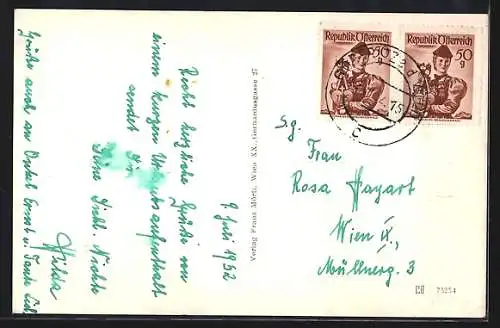 9. Juli 1952
Recht herzliche Grüße von
einem kurzen Urlaubsaufenthalt
sendet Dir
Deine Nichte
Hilda
Grüße auch an Onkel Ernst u. Tante
Verlag Franz Mörtl, Wien XX., Gerhardusgasse 25
Republik Österreich
50
g
Republik Österreich
50
g
S.g.
Frau
Rosa Hayart
Wien IX,
Müllnerg. 3
75254